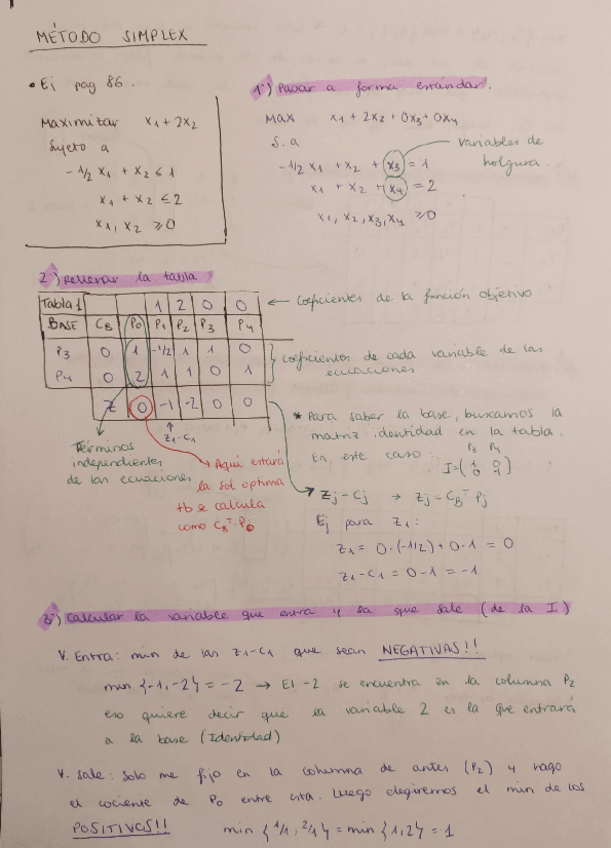 MÉTODO SIMPLEX
• Ej pag 86.
Maximitar x1 + 2x2
Sujeto a
-1/2 x1 + x2 ≤ 1
x1 + x2 ≤ 2
x1, x2 ≥ 0
1º) Pasar a forma estándar.
Max x1 + 2x2 + 0x3 + 0x4
S.a
-1/2 x1 + x2 + x3 = 1
x1 + x2 + x4 = 2
x1, x2, x3, x4 ≥ 0
variables de
holgura.
2º) Rellenar la tabla
Tabla 1 1 2 0 0
BASE CB P0 P1 P2 P3 P4
P3 0 1 -1/2 1 1 0
P4 0 2 1 1 0 1
Z 0 -1 -2 0 0
← Coeficientes de la función objetivo
Coeficientes de cada variable de las
ecuaciones
↑
Z1-C1
Términos
independientes
de las ecuaciones
→ Aquí estará
la sol optima
tb se calcula
como CB^T·P0
* Para saber la base, buscamos la
matriz identidad en la tabla.
P3 P4
En este caso: I = (1 0
0 1)
Zj - Cj → Zj - CB^T Pj
Ej para Z1:
Z1 = 0·(-1/2) + 0·1 = 0
Z1 - C1 = 0 - 1 = -1
3º) Calcular la variable que entra y la que sale (de la I)
V. Entra: min de las Z1-C1 que sean NEGATIVAS!!
min {-1, -2} = -2 → El -2 se encuentra en la columna P2
eso quiere decir que la variable 2 es la que entrará
a la base (Identidad)
V. Sale: Solo me fijo en la columna de antes (P2) y hago
el cociente de P0 entre esta. Luego elegiremos el min de los
POSITIVOS!! min {1/1, 2/1} = min {1, 2} = 1